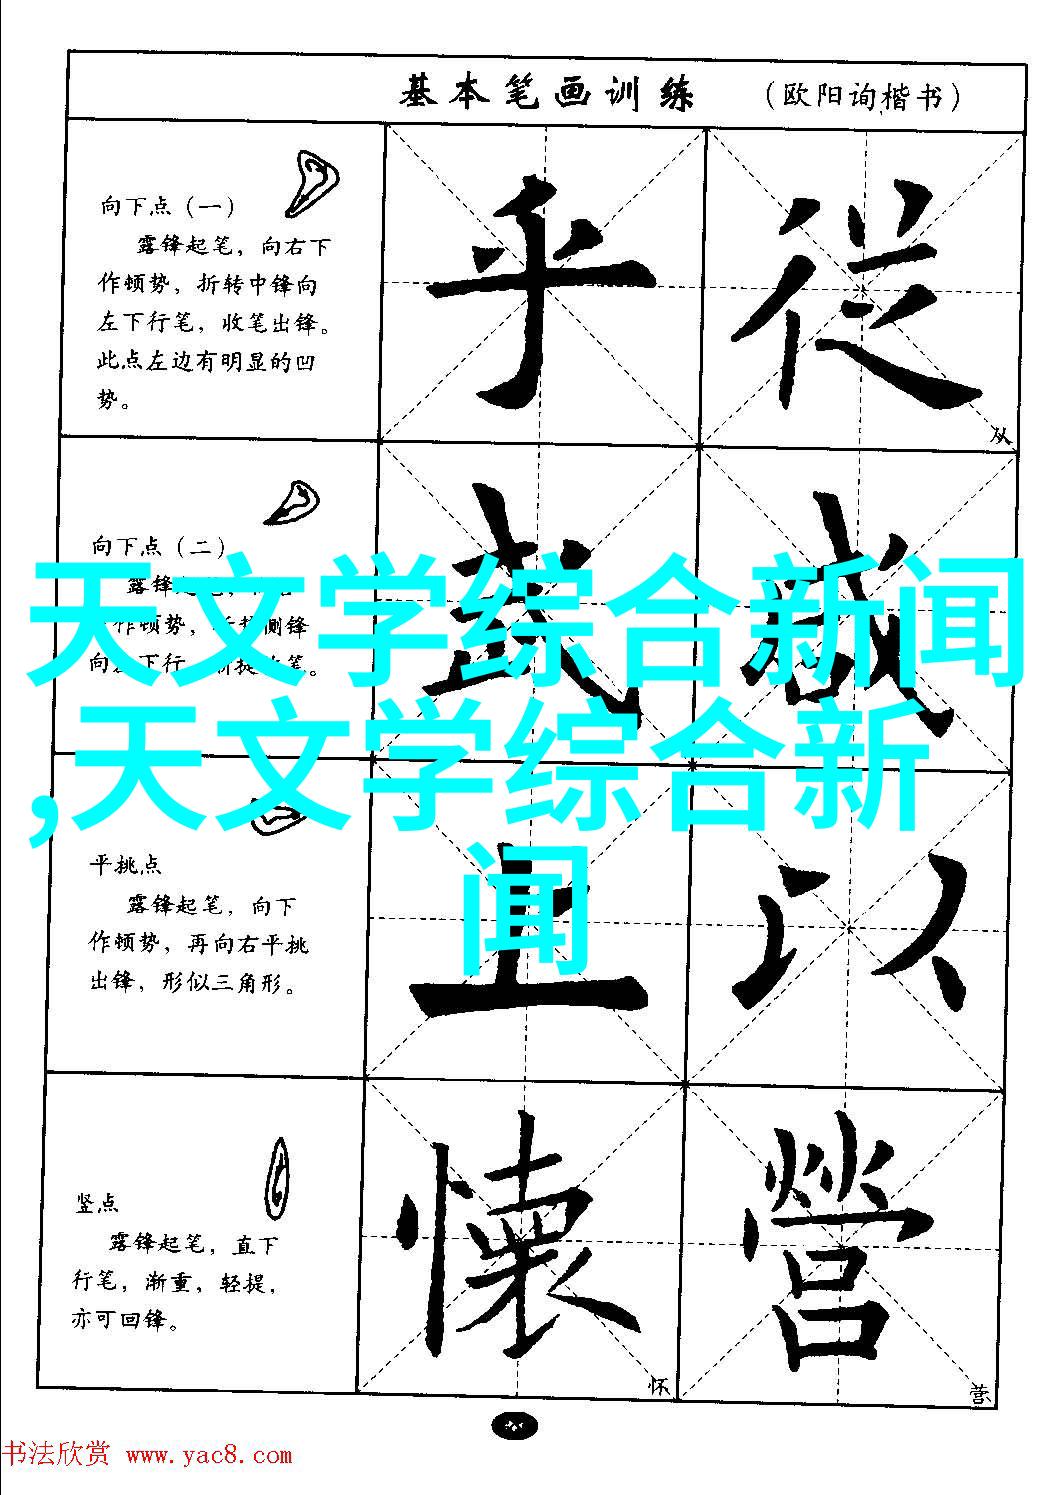 基本笔画训练 （欧阳询楷书）
向下点（一）
露锋起笔，向右下
作顿势，折转中锋向
左下行笔，收笔出锋。
此点左边有明显的凹
势。
乎 從
从
向下点（二）
露锋
作顿势，
侧锋
向
下行
笔。
天文学综合新闻
,天文学综合新
闻
平挑点
露锋起笔，向下
作顿势，再向右平挑
出锋，形似三角形。
上 以
竖点
露锋起笔，直下
行笔，渐重，轻提，
亦可回锋。
懷 營
怀
营
书法欣赏 www.yac8.com